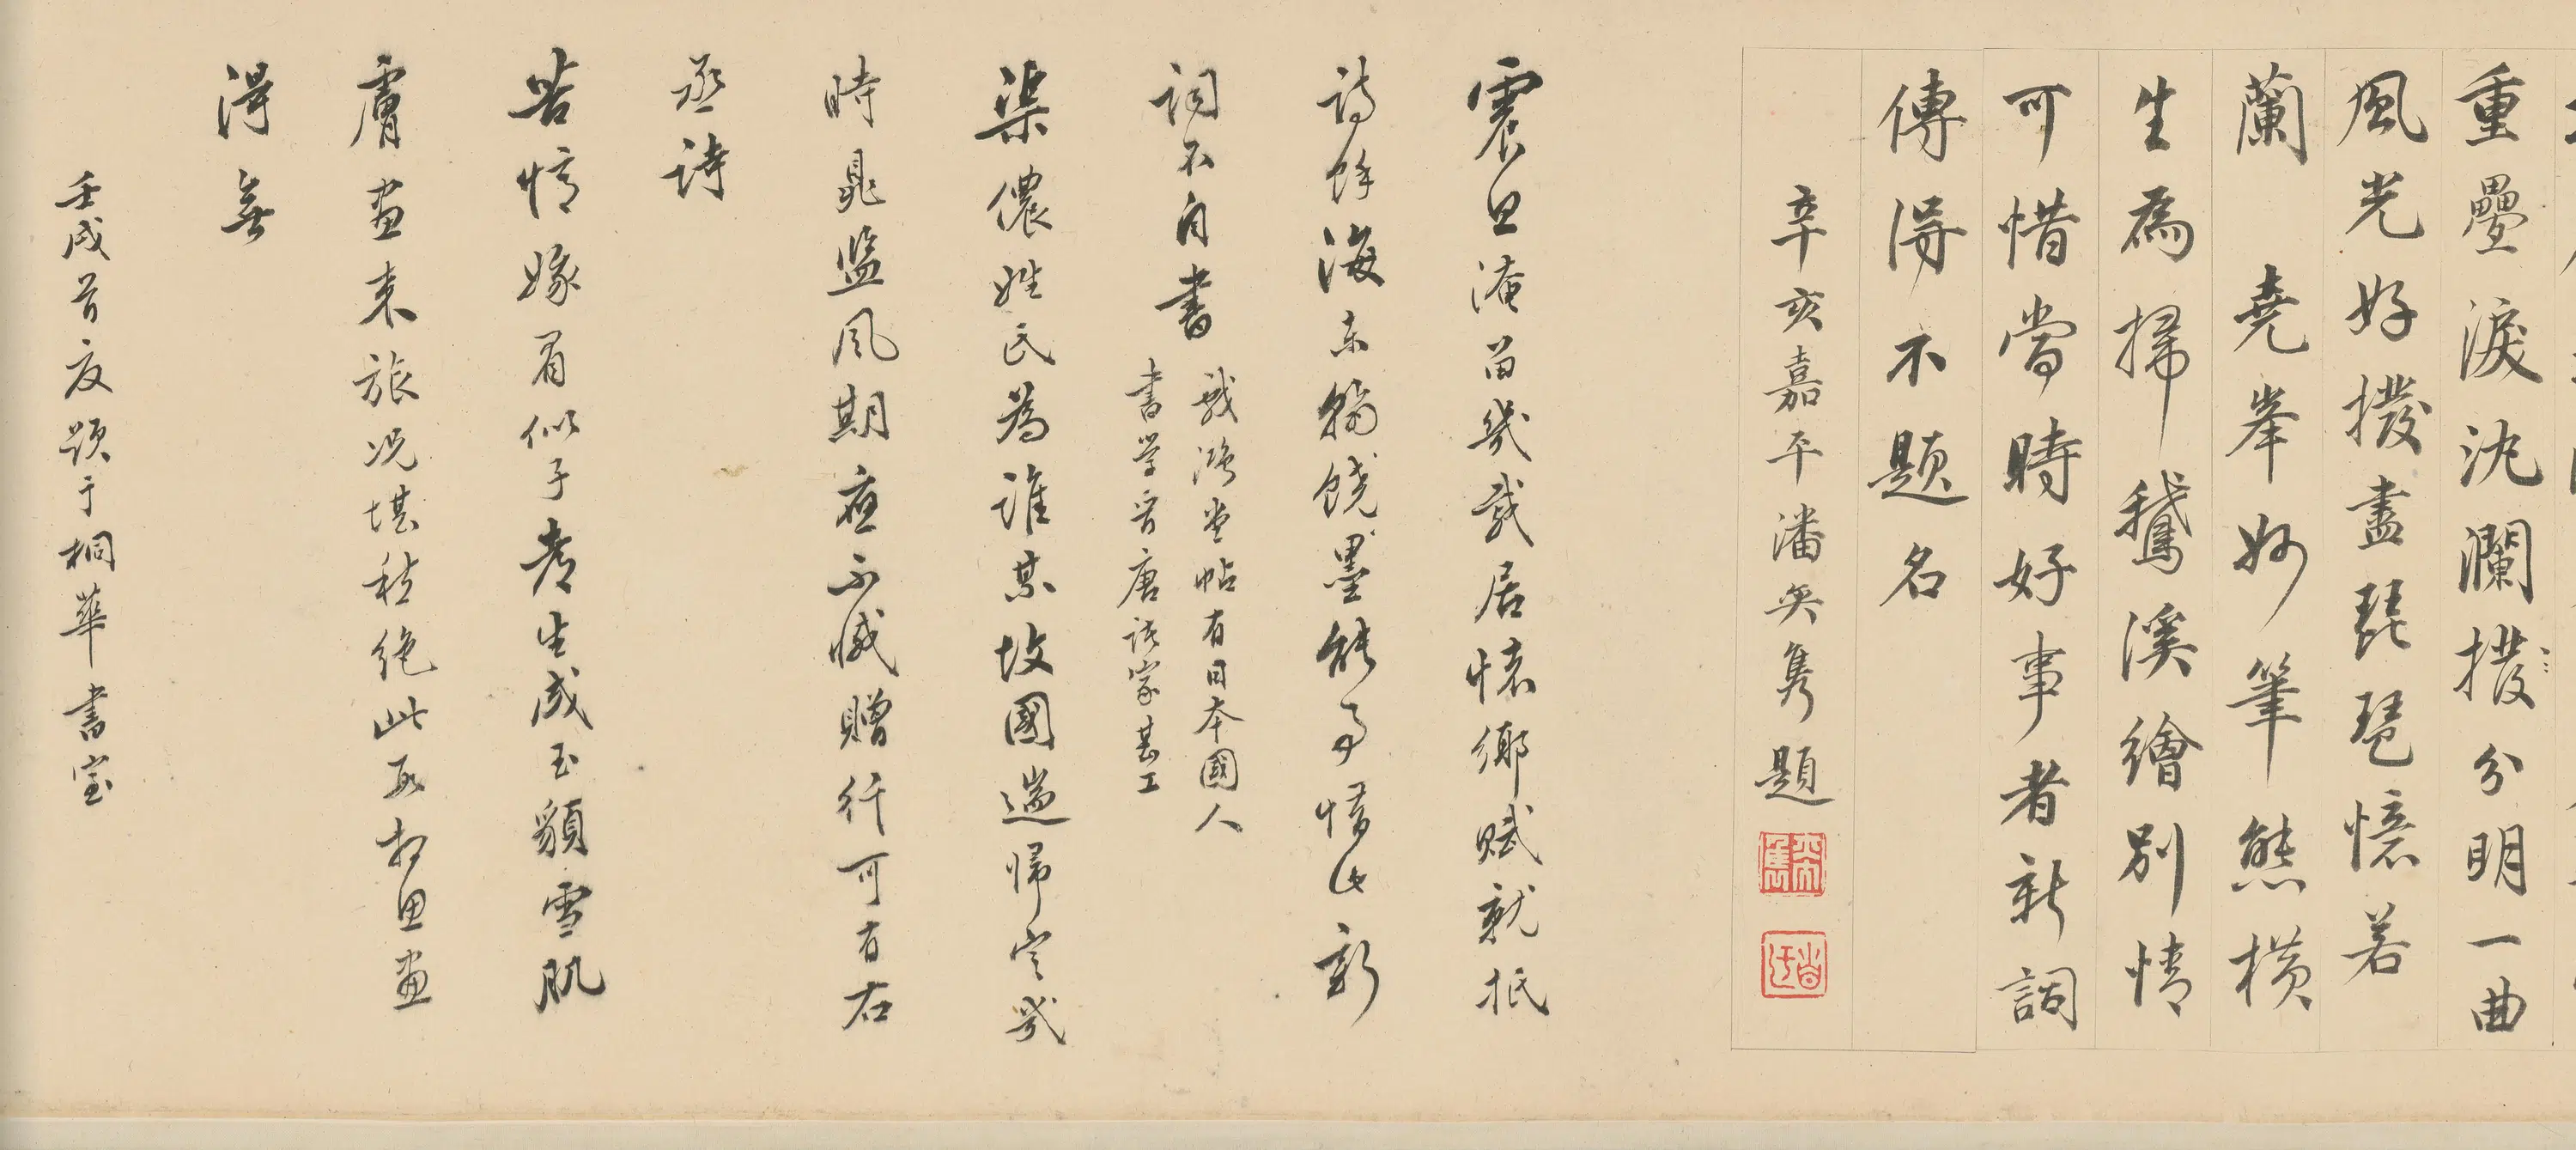 重疊淚沈瀾撥分明一曲
風光好撥盡琵琶憶若
蘭 堯峯妙筆熊橫
生為掃鵝溪繪別情
可惜當時好事者新詞
傳得不題名
辛亥嘉平潘奕雋題
震旦淹留幾載居懷鄉賦就抵
詩餘海東翰墨能事惜此新
詞不自書
戲鴻堂帖有日本國人
書學晉唐諸家甚工
渠儂姓氏為誰某故國遄歸定幾
時晁監風期應不愧贈行可有右
丞詩
苦憶嫁眉似子都生成玉貌雪肌
膚畫來旅況堪愁絕此反相思畫
得無
壬戌首夏題于桐華書室